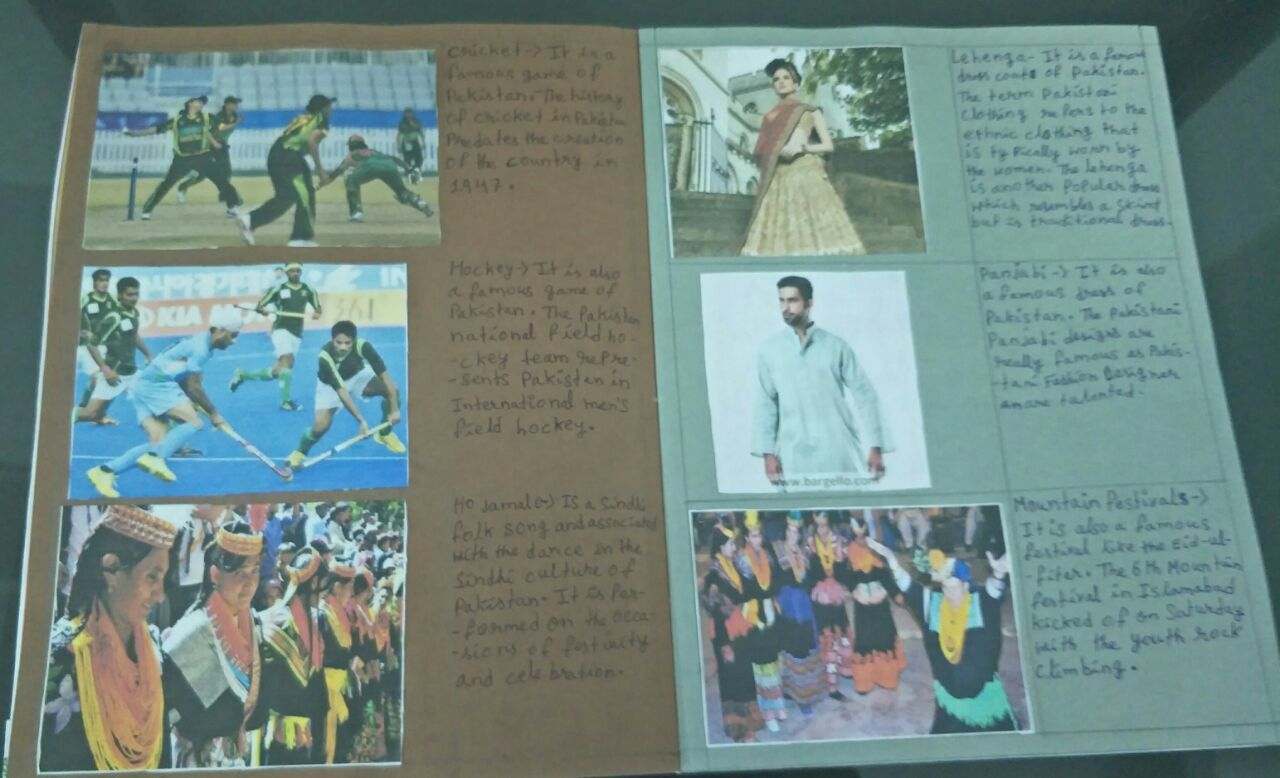 Cricket → It is a
famous game of
Pakistan. The history
of cricket in Pakistan
Predates the creation
of the country in
1947.
Hockey → It is also
a famous game of
Pakistan. The Pakistan
national field ho-
-ckey team repre-
-sents Pakistan in
International men's
field hockey.
Ho Jamalo → Is a Sindhi
folk song and associated
with the dance in the
Sindhi culture of
Pakistan. It is Per-
-formed on the occa-
-sions of festivity
and celebration.
Lehenga - It is a famous
dress of Pakistan.
The term Pakistani
clothing refers to the
ethnic clothing that
is typically worn by
the women. The lehenga
is another Popular dress
which resembles a Skirt
but is traditional dress.
Panjabi → It is also
a famous dress of
Pakistan. The Pakistani
Panjabi designs are
really famous as Pakis-
-tani Fashion Designer
are talented.
Mountain Festivals →
It is also a famous
festival like the Eid-ul-
-fiter. The 6th Mountain
festival in Islamabad
kicked of on Saturday
with the youth rock
Climbing.
KIA
361
IN
www.bargello.com